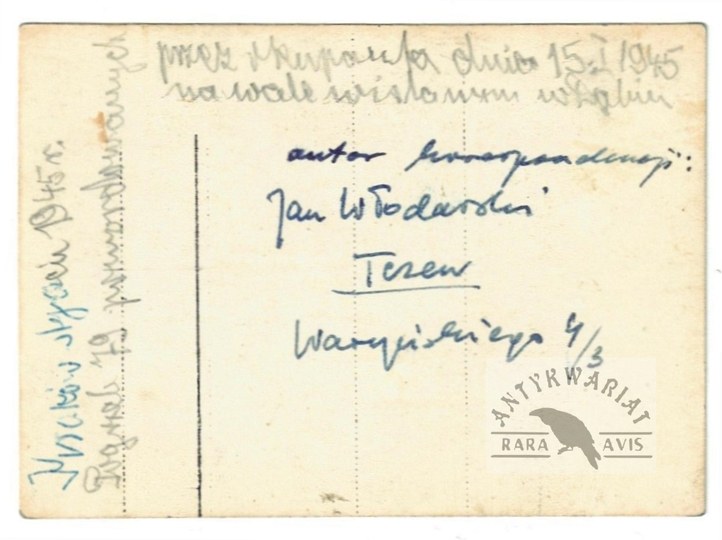 Kraków styczeń 1945 r.
Pogrzeb 79 pomordowanych
przez okupanta dnia 15-I 1945
na wale wiślanym w Dąbiu
autor korespondencji:
Jan Włodarski
Tczew
Waryńskiego 4/3
ANTYKWARIAT
RARA AVIS